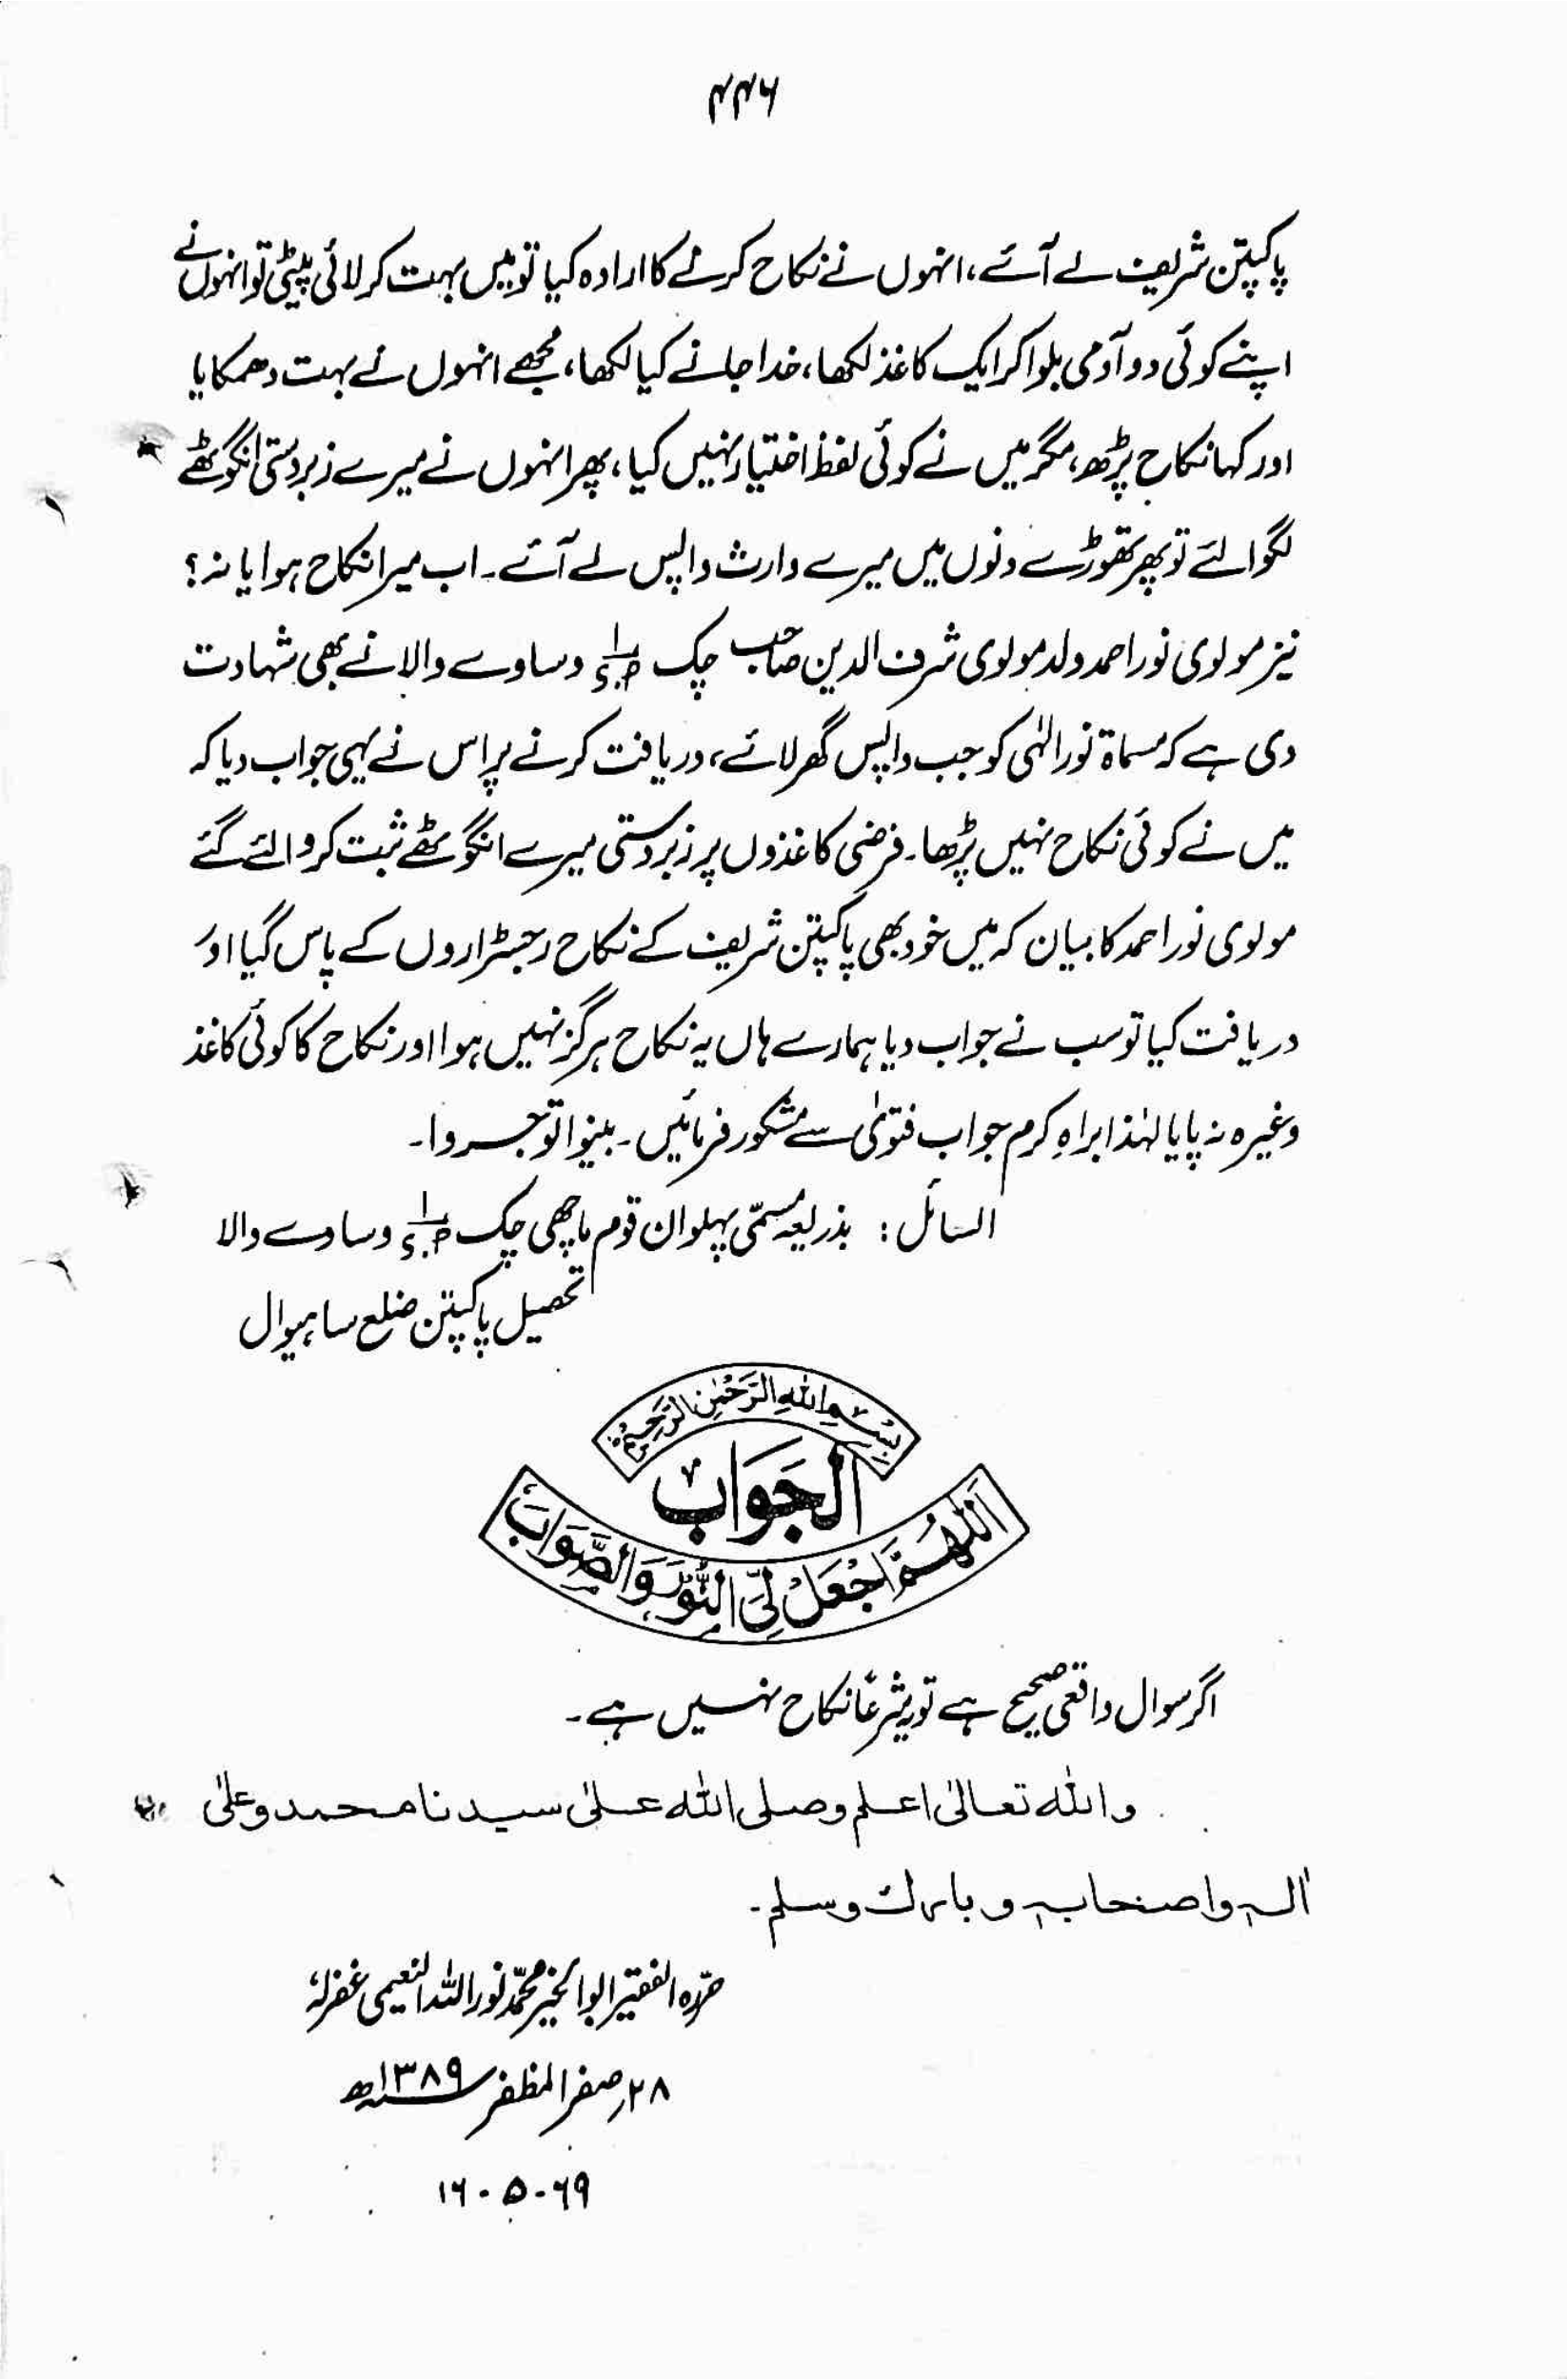 ۴۴۶
پاکپتن شریف لے آئے، انہوں نے نکاح کرنے کا ارادہ کیا تو میں بہت کرلائی پیٹی تو انہوں نے
اپنے کوئی دو آدمی بلوا کر ایک کاغذ لکھا، خدا جانے کیا لکھا، مجھے انہوں نے بہت دھمکایا
اور کہا نکاح پڑھ، مگر میں نے کوئی لفظ اختیار نہیں کیا، پھر انہوں نے میرے زبردستی انگوٹھے
لگوا لئے تو پھر تھوڑے دنوں میں میرے وارث واپس لے آئے۔ اب میرا نکاح ہوا یا نہ؟
نیز مولوی نور احمد ولد مولوی شرف الدین صاحب چک وساوے والا نے بھی شہادت
دی ہے کہ مسماۃ نور الٰہی کو جب واپس گھر لائے، دریافت کرنے پر اس نے یہی جواب دیا کہ
میں نے کوئی نکاح نہیں پڑھا۔ فرضی کاغذوں پر زبردستی میرے انگوٹھے ثبت کروا لئے گئے
مولوی نور احمد کا بیان کہ میں خود بھی پاکپتن شریف کے نکاح رجسٹراروں کے پاس گیا اور
دریافت کیا تو سب نے جواب دیا ہمارے ہاں یہ نکاح ہرگز نہیں ہوا اور نکاح کا کوئی کاغذ
وغیرہ نہ پایا لہٰذا براہِ کرم جواب فتویٰ سے مشکور فرمائیں۔ بینوا توجروا۔
السائل: بذریعہ مسمّی پہلوان قوم ماچھی چک وساوے والا
تحصیل پاکپتن ضلع ساہیوال
بِسْمِ اللهِ الرَّحْمٰنِ الرَّحِيْمِ
الجَوَابُ
اَللّٰهُمَّ اجْعَلْ لِّىَ النُّوْرَ وَالصَّوَابَ
اگر سوال واقعی صحیح ہے تو یہ شرعًا نکاح نہیں ہے۔
والله تعالىٰ اعلم وصلى الله علىٰ سيدنا محمد وعلىٰ
اٰلہٖ واصحابہٖ وبارك وسلم۔
حرّرہ الفقیر ابو الخیر محمّد نور اللہ النعیمی غفرلہٗ
۲۸؍ صفر المظفر ۱۳۸۹ھ
۱۶-۵-۶۹